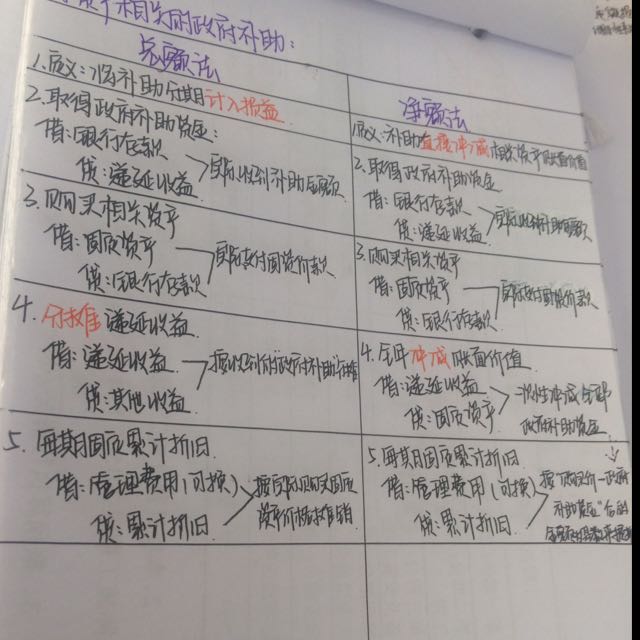 资产相关的政府补助:
总额法
1.定义:将补助分期计入损益
2.取得政府补助资金:
借:银行存款
贷:递延收益
实际收到补助金额
3.购买相关资产
借:固定资产
贷:银行存款
实际支付固资价款
4.分摊递延收益
借:递延收益
贷:其他收益
按收到的政府补助分摊
5.每期固定累计折旧
借:管理费用(可换)
贷:累计折旧
按实际购买固定
资产价格摊销
净额法
1.定义:补助直接冲减相关资产账面价值
2.取得政府补助资金
借:银行存款
贷:递延收益
实际收到补助金额
3.购买相关资产
借:固定资产
贷:银行存款
实际支付固资价款
4.全部冲减账面价值
借:递延收益
贷:固定资产
一次性冲减全部
政府补助资金
5.每期固定累计折旧
借:管理费用(可换)
贷:累计折旧
政府
补助资金"后的